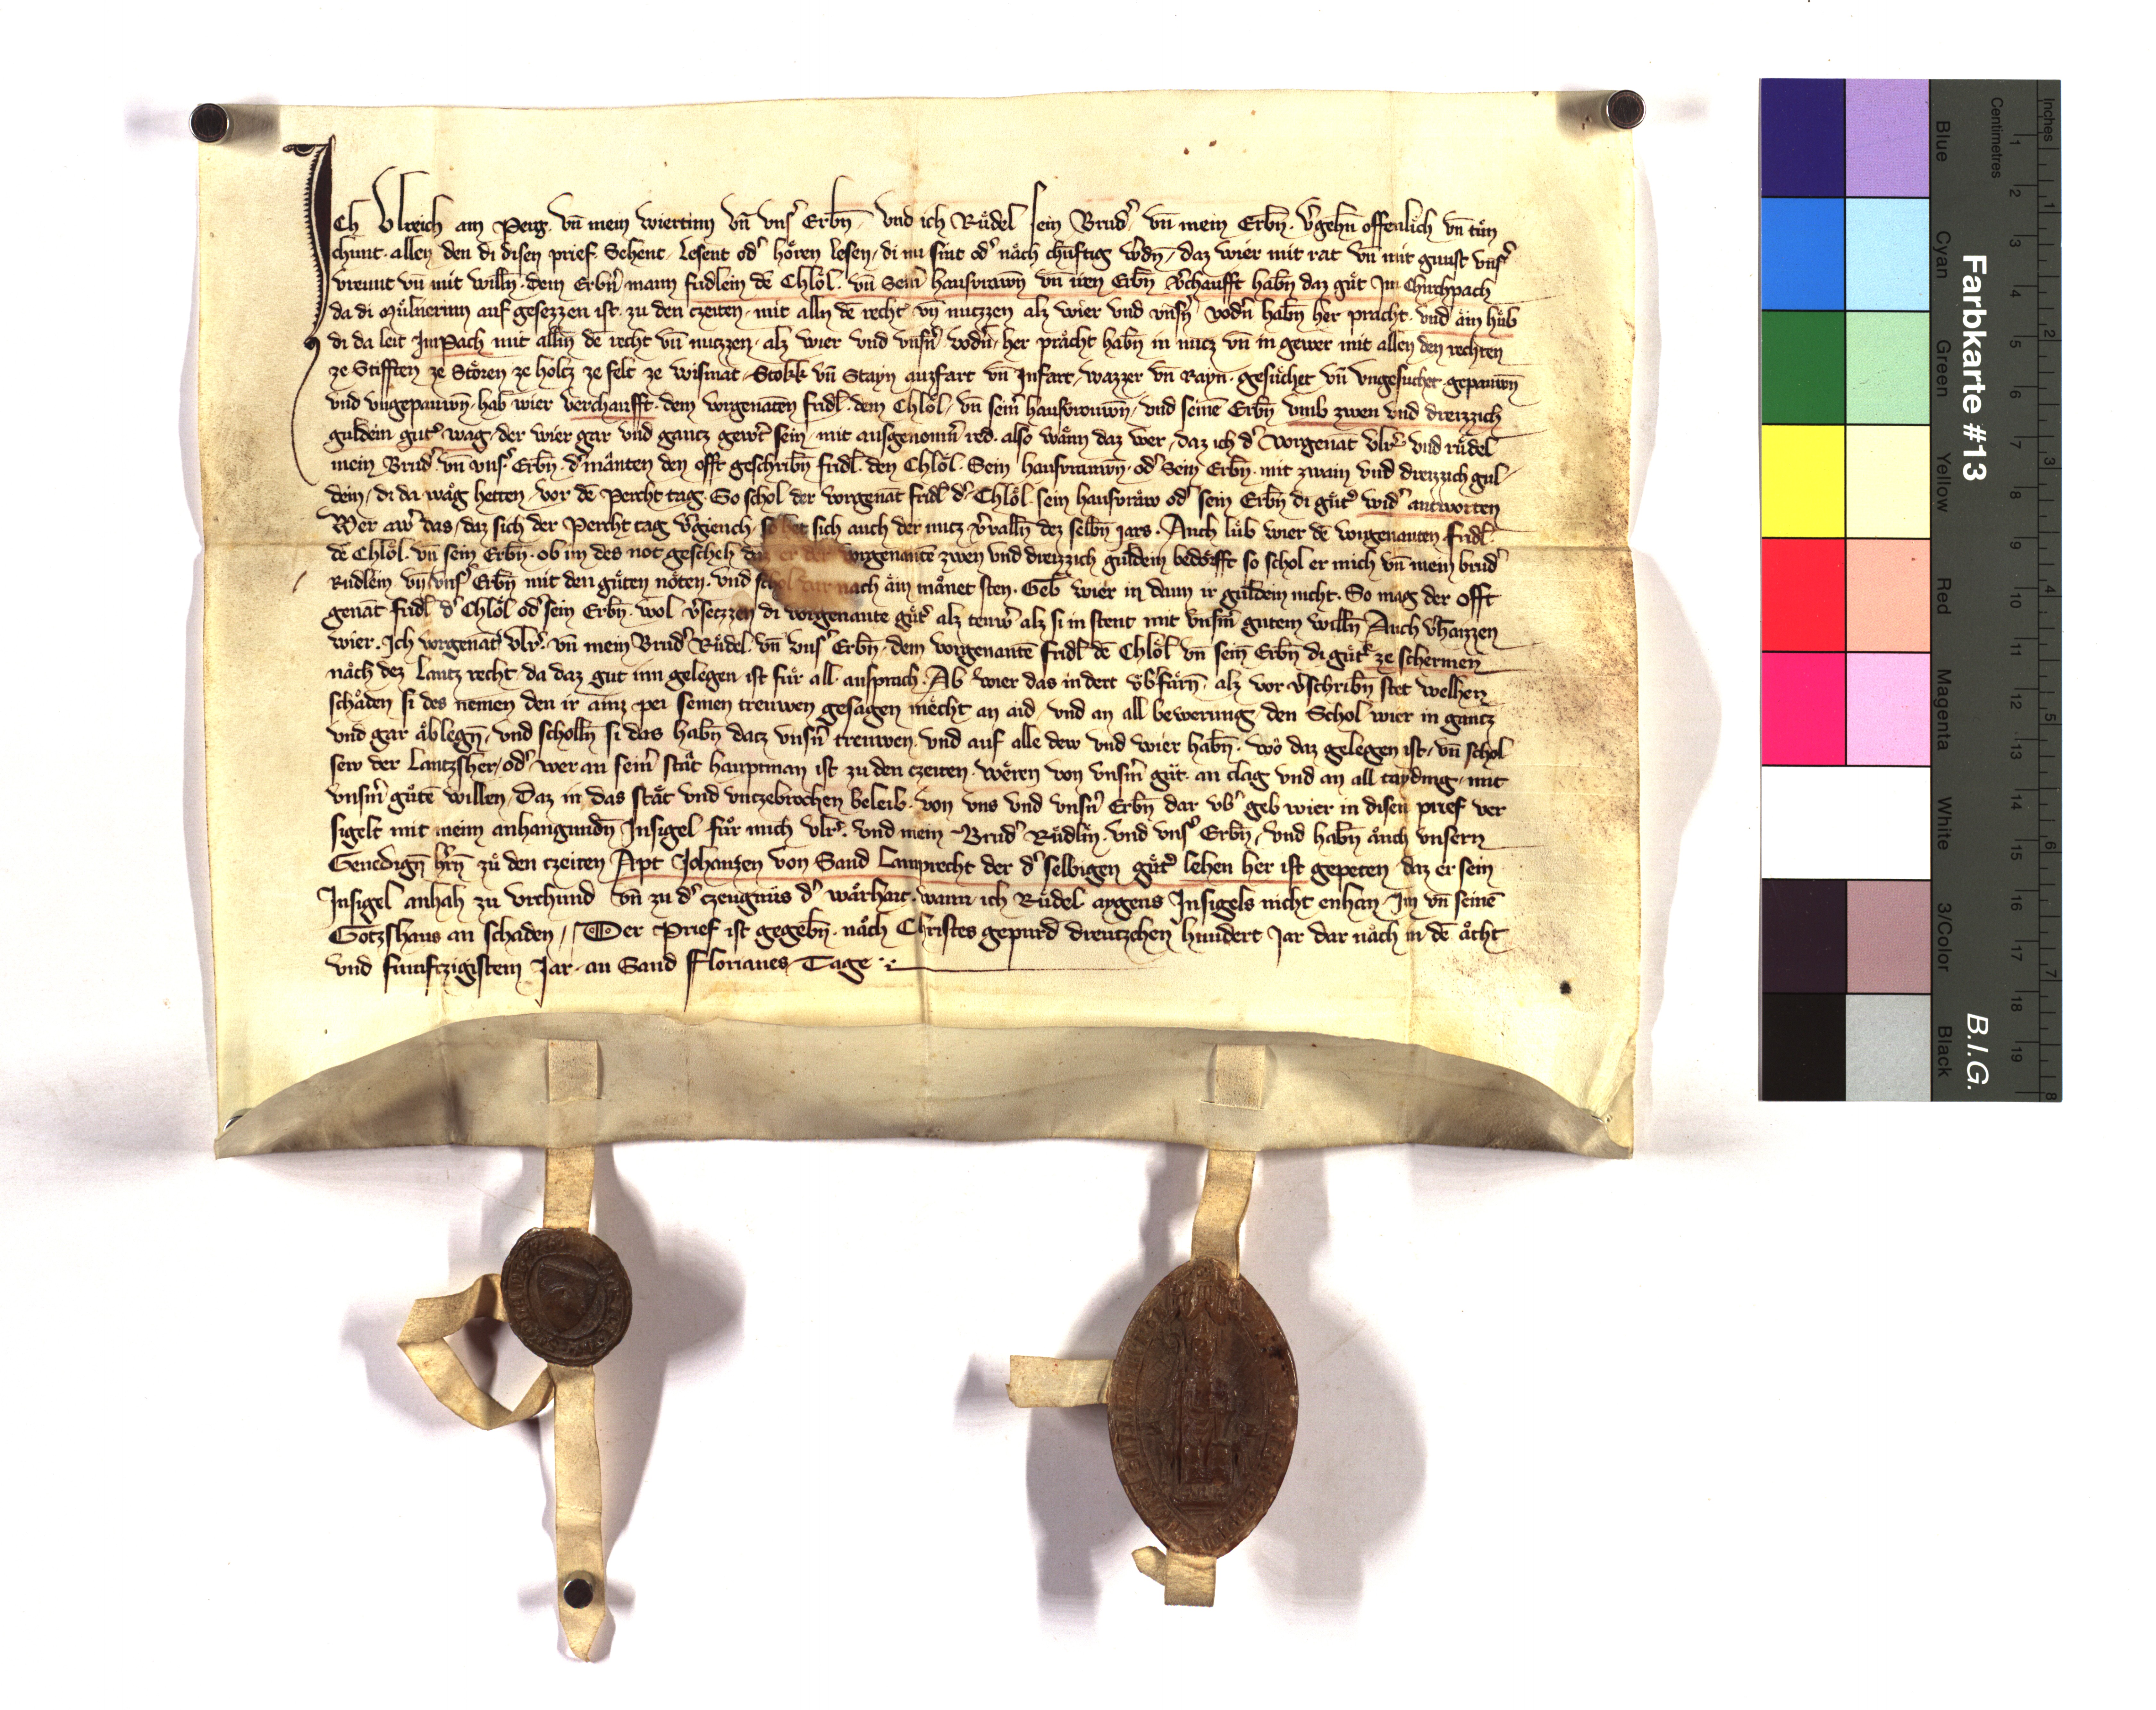 Ich Ulreich am Perg. vn̄ mein wiertinn vn̄ vns' Erbn̄, vnd ich Růdel sein Brud' vn̄ mein Erbn̄. v'gehn̄ offenlich vn̄ tůn
chunt. allen den di disen prief. Sehent, lesent od' hoͤren lesen, di nu sint od' nach chuͤnftig w'dn̄, daz wier mit rat vn̄ mit gunst vns'
vreunt vn̄ mit willn̄. dem Erbn̄ mann fridlein dē Chloͤl. vn̄ Sein̄ hausvrawn̄ vn̄ iren Erbn̄ v'chaufft habn̄ daz guͤt Im Chirchpach
da di Muͤlnerinn auf gesezzen ist. zu den czeiten. mit alln dē recht vn̄ nuczzen alz wier vnd vnsn̄ vodn̄ habn̄ her pracht. vnd aͤin huͤb
di da leit ImPach mit alln̄ dē recht vn̄ nuczzen, alz wier vnd vnsn̄ vodn̄, her praͤcht habn̄ in nucz vn̄ in gewer mit allen den rechten
ze Stifften ze Stoͤren ze holcz ze felt ze wismat, Stokk vn̄ Stayn auzfart vn̄ Infart, wazzer vn̄ Rayn. gesuͤchet vn̄ vngesuchet. gepauwn̄
vnd vngepauwn̄. hab wier verchaufft. dem vorgenāten fridl. dem Chloͤl, vn̄ sein̄ hausvrouwn̄, vnd seinē Erbn̄ vmb zwen vnd dreizzich
guldein gut' wag, der wier gar vnd gantz gew't sein, mit ausgenomn̄ red. also wann daz wer, daz ich d' vorgenāt vlr' vnd ruͤdel
mein Brud' vn̄ vns' Erbn̄. d'mānten den offt geschribn̄ fridl. den Chloͤl. Sein hausvrauwn̄. od' Sein Erbn̄. mit zwain vnd dreizzich gul-
dein, di da waͤg hetten, vor dē Percht tag. So schol der vorgenāt fridl d' Chloͤl. sein hausvraw od' sein Erbn̄ di guͤt' wid' antworten
Wer aw' das, daz sich der Percht tag v'giench, so het sich auch der nucz v'valln̄ dez selbn̄ Jars. Auch luͤb wier dē vorgenanten fridl.
dē Chloͤl. vn̄ sein Erbn̄. ob im des not gescheh daz er der vorgenante zwen vnd dreizzich guldein bedoͤrfft so schol er mich vn̄ mein brud'
Rudlein vn̄ vns' Erbn̄ mit den guͤten noͤten. vnd schol dar nach aͤin maͦnet sten. Geb wier in dann ir guldein nicht. So mag der offt
genāt fridl d' Chloͤl od' sein Erbn̄. wol v'seczzen di vorgenante guͤt' alz tewr' alz si in stent mit vnsm̄ gutem willn̄ Auch v'haizzen
wier. Ich vorgenāt vlr'. vn̄ mein Brud' Ruͤdel. vn̄ vns' Erbn̄. dem vorgenantē fridl dē Chloͤl vn̄ sein Erbn̄ di guͤt' ze schermen
naͦch dez Lantz recht. da daz gut inn gelegen ist fuͤr all ansprach. Ab wier das in dert vb'fuͤrn, alz vor v'schribn̄ stet welhen
schaͤden si des nemen den ir ainz pei seinen treuwen gesagen mecht an aid, vnd an all bewerung, den Schol wier in gantz
vnd gar aͦblegn̄, vnd scholln̄ si das habn̄ datz vnsn̄ treuwen. vnd auf alle dew vnd wier habn̄. wo daz gelegen ist, vn̄ schol
sew der Lantzsher, od' wer an sein̄ staͤt hauptman ist zu den czeiten. weͤren von vnsm̄ guͤt. an clag vnd an all tayding, mit
vnsm̄ guͤtē willen, Daz in das staͤt vnd vnczebrochen beleib. von vns vnd vnsn̄ Erbn̄ dar vb' geb wier in disen prief ver
sigelt mit meim anhangundn̄ Insigel fuͤr mich vlr'. vnd mein Brud' Ruͤdlin. vnd vns' Erbn̄, vnd habn̄ auch vnsern
Genedign̄ hrn̄ zu den czeiten Apt Johansen von Sand Lamprecht der d' selbigen guͤt' lehen her ist gepeten daz er sein
Insigel anhah zu vrchund vn̄ zu d' czeugnuͤs d' warhait. wann ich Ruͤdel aygens Insigels nicht enhan, Im vn̄ seinē
Gotzshaus an schaden, Der Prief ist gegebn̄. naͦch Christes gepurd dreutzehen hundert Jar dar naͦch in dē aͦcht
vnd fumfczigistem Jar. an Sand Florianes Tage.
Farbkarte #13
B.I.G.
Blue
Cyan
Green
Yellow
Red
Magenta
White
3/Color
Black
Inches
Centimetres
1 2 3 4 5 6 7 8 9 10 11 12 13 14 15 16 17 18 19
1 2 3 4 5 6 7 8